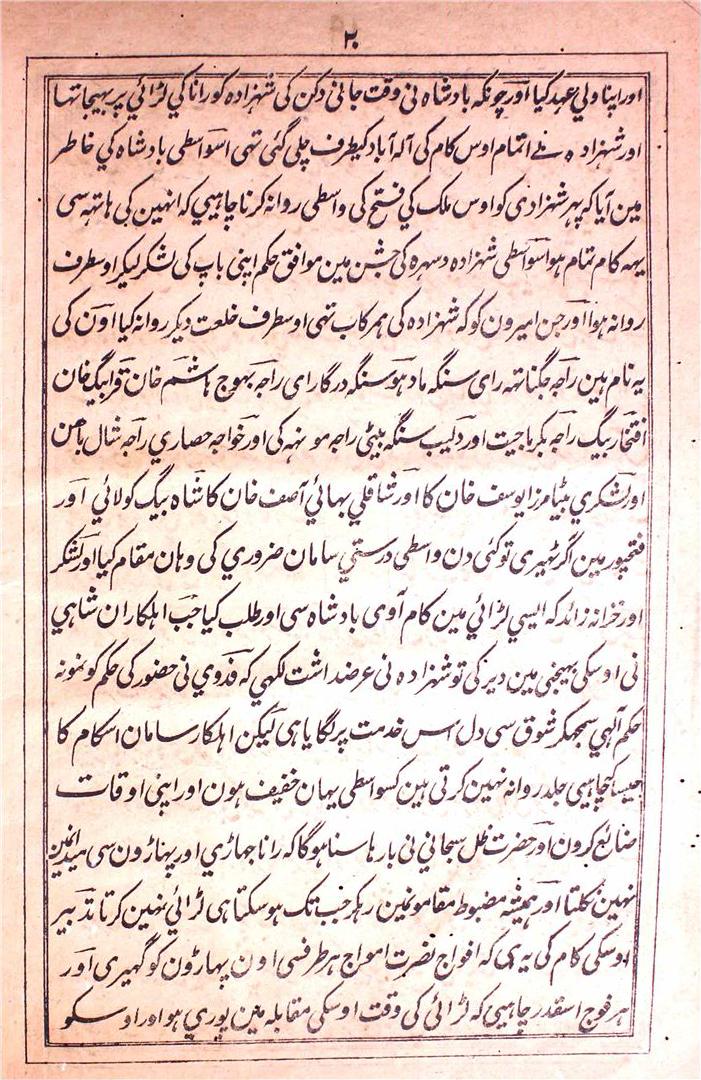 ٢٠
اور اپنا ولي عہد کیا اور چونکہ بادشاہ نی وقت جانی دکن کی شہزادہ کو رانا کي لڑائي پر بہیجا تہا
اور شہزادہ بے اتمام اوس کام کی آلہ آباد کیطرف چلی گئی تہی اسواسطی بادشاہ کي خاطر
مین آیا کہ پہر شہزادی کو اوس ملک کي فتح کی واسطی روانہ کرنا چاہیی کہ انہین کی ہاتہہ سی
یہہ کام تمام ہو اسواسطی شہزادہ دسہرہ کی جشن مین موافق حکم اپنی باپ کی لشکر لیکر اوسطرف
روانہ ہوا اور جن امیرون کو کہ شہزادہ کی ہمرکاب تہی اوسطرف خلعت دیکر روانہ کیا اون کی
یہ نام ہین راجہ جگناتہہ رای سنگہ مادہو سنگہ درگا رای راجہ بہوج ہاشم خان قرا بیگ خان
افتخار بیگ راجہ بکرماجیت اور دلیب سنگہ بیٹی راجہ موتہہ کی اور خواجہ حصاري راجہ شال باہن
اور لشکري بیٹا مرزا یوسف خان کا اور شاقلي بہائي آصف خان کا شاہ بیگ کولائي اور
فتحپور مین اگر ٹہیری تو کئی دن واسطی درستي سامان ضروري کی وہان مقام کیا اور لشکر
اور خزانہ زائد کہ ایسي لڑائي مین کام آوی بادشاہ سی اور طلب کیا جب اہلکاران شاہي
نی اوسکی بہیجنی مین دیر کی تو شہزادہ نی عرضداشت لکہي کہ فدوي نی حضور کی حکم کو نمونہ
حکم آلہي سمجہکر شوق سی دل اس خدمت پر لگایا ہی لیکن اہلکار سامان اسکام کا
جیسا کچاہیی جلد روانہ نہین کرتی ہین کسواسطی یہان خفیف ہون اور اپنی اوقات
ضائع کرون اور حضرت ظل سبحاني نی بارہا سنا ہوگا کہ رانا جہاڑي اور پہاڑون سی میدانمین
نہین نکلتا اور ہمیشہ مضبوط مقامونمین رہکر جب تک ہوسکتا ہی لڑائي نہین کرتا تدبیر
اوسکی کام کی یہ ہی کہ افواج نصرت امواج ہر طرفسی اون پہاڑون کو گہیری اور
ہر فوج اسقدر چاہیی کہ لڑائی کی وقت اوسکی مقابلہ مین پوري ہو اور اوسکو